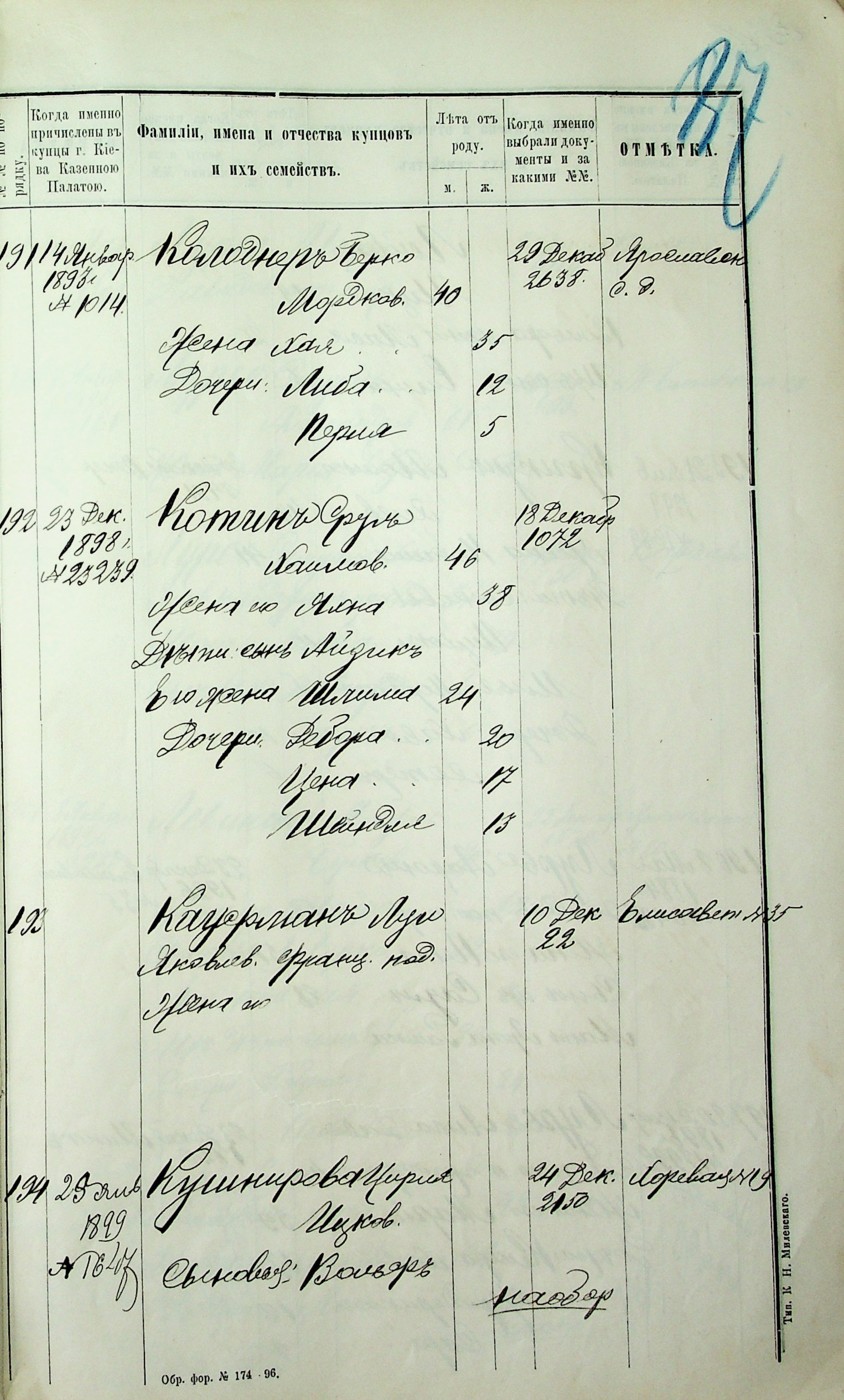 37
№№ по по рядку.
Когда именно причислены въ купцы г. Кіева Казенною Палатою.
Фамиліи, имена и отчества купцовъ
и ихъ семействъ.
Лѣта отъ роду.
м. ж.
Когда именно выбрали документы и за какими №№.
ОТМѢТКА.
191 14 Январ Колоднеръ Берко 29 Декаб Ярославск
1893 г. 2638. с. д.
№ 1014. Мордков. 40
Жена Хая 35
Дочери: Либа 12
Перля 5
192 23 Дек. Котинъ Сруль 18 Декабр
1898 г. 1072
№ 23239. Хаимов. 46
Жена его 38
Дѣти: сынъ Айзикъ
Его жена Шлима 24
Дочери: Дебора 20
Цена 17
Шейндля 13
193 Кауфманъ Луи 10 Дек Елисавет № 35
22
Яковлев. Франц. под.
Жена его
194 Кушнирова Цирля 24 Дек. Хоревая № 19
1899 2150
Ицков.
Сыновья: Вольфъ
наобор
Обр. фор. № 174 - 96.
Тип. К Н. Милевскаго.